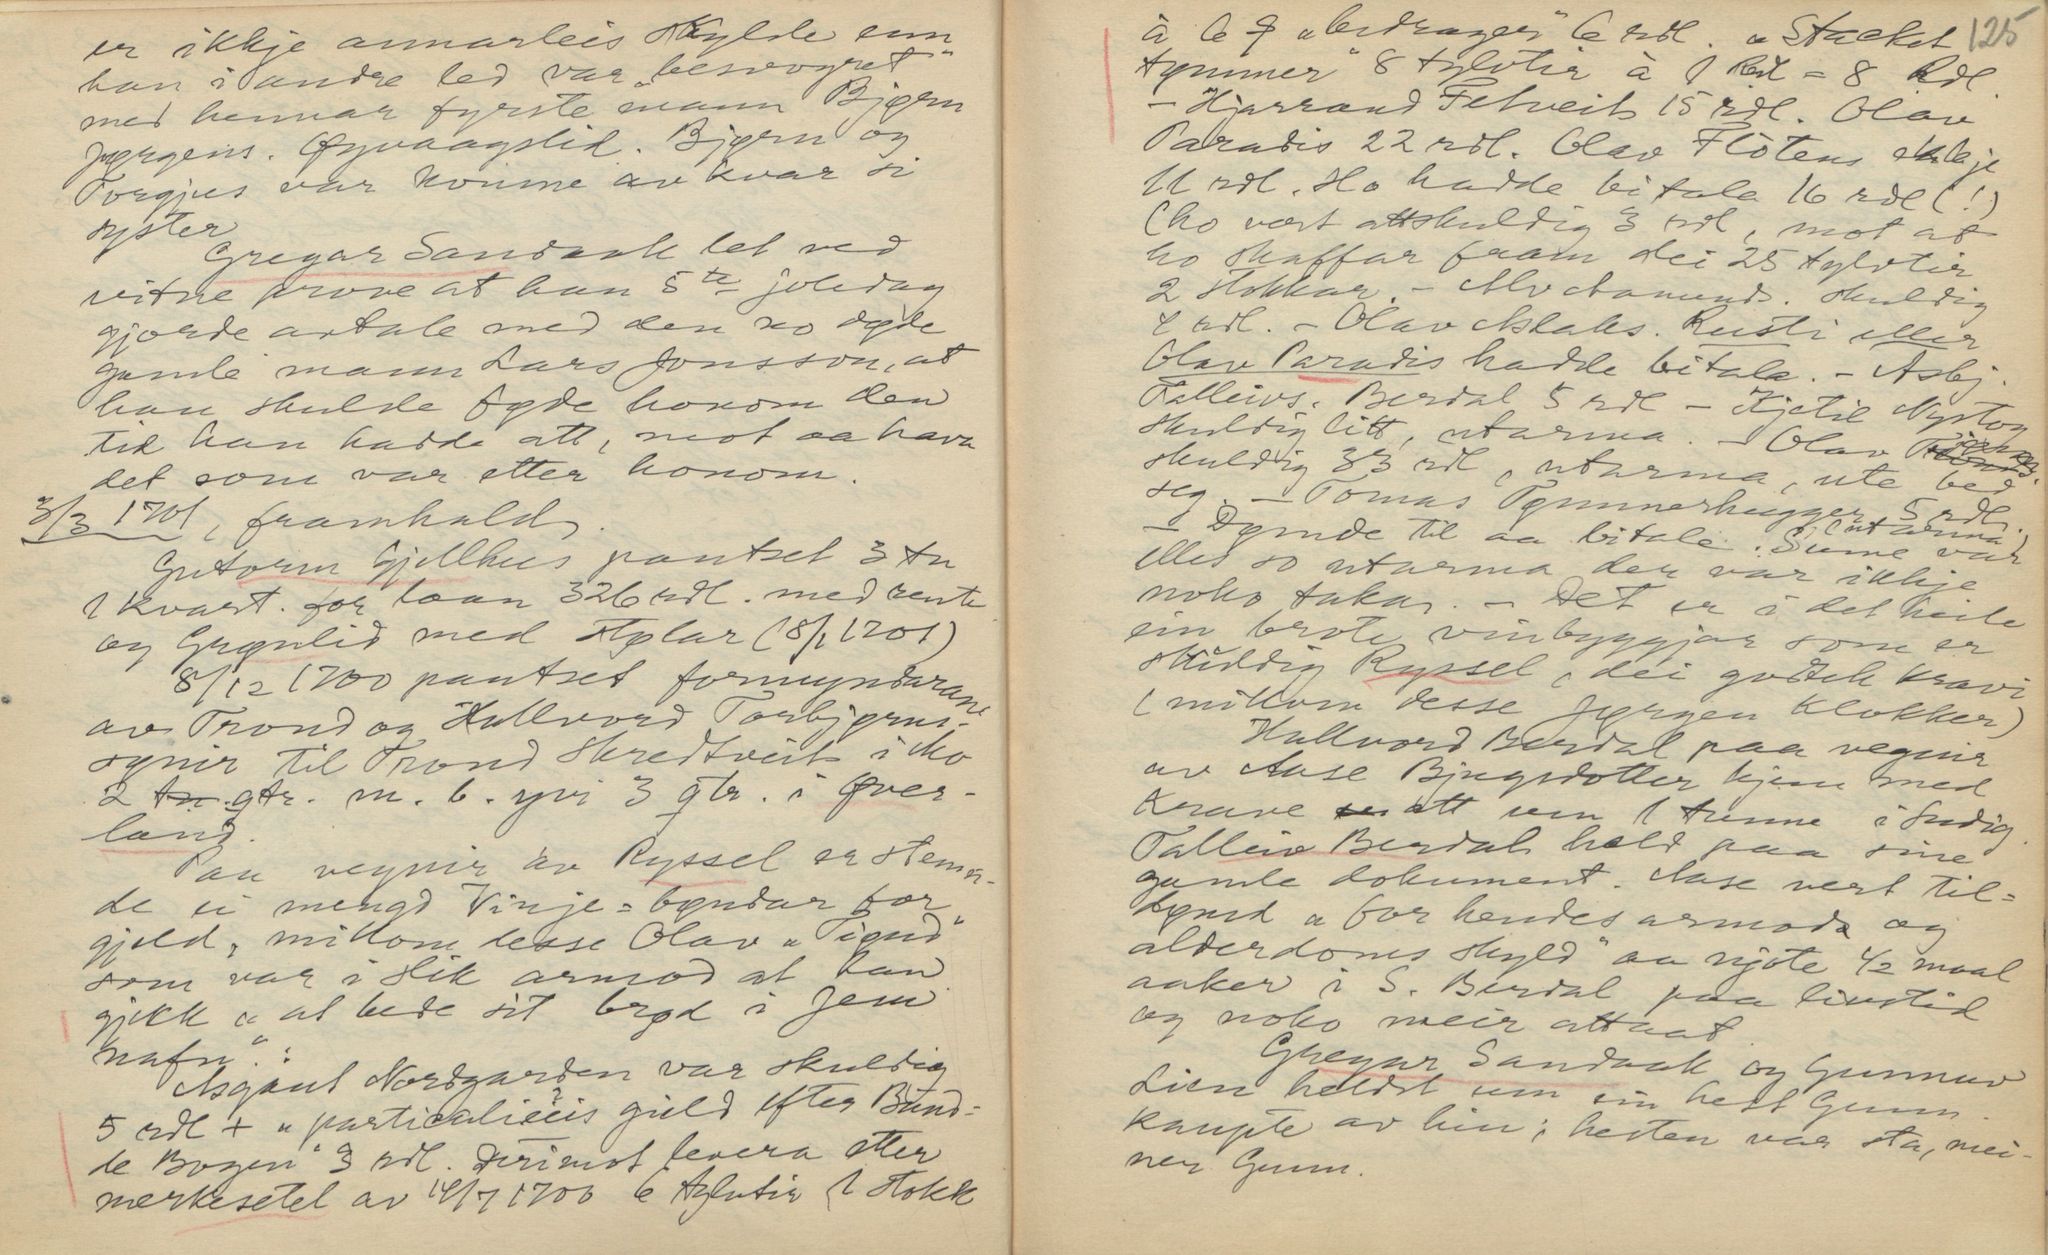 er ikkje annarleis skylde enn
han i andre led var "besvogret"
med hennar fyrste mann Bjørn
Jørgens. Øyvaagslid. Bjørn og
Torgjus var komne av kvar si
syster
Gregar Sandaak let ved
vitne prove at han 5te joledag
gjorde avtale med den no døde
gamle mann Lars Jonsson, at
han skulde føde honom den
tid han hadde att, mot aa hava
det som var etter honom.
3/3 1701, framhald.
Gutorm Gjellhus pantset 3 tn
1 kvart. for laan 326 rdl. med rente
og Grønlid med Stølar (8/1 1701)
8/12 1700 pantset formyndarane
av Trond og Hallvord Torbjørns-
synir til Trond Skredtveit i Mo
2 tn. gtr. m. b. yvi 3 gtr. i Øver-
land.
Paa vegnir av Ryssel er stemn-
de ei mengd Vinje=bøndar for
gjeld, millom desse Olav "Tignd"
som var i slik armod at han
gjekk "at bede sit brød i Jesu
nafn".:
Asgaut Nordgarden var skuldig
5 rdl + "particalieris gield efter Bund-
de Bogen" 3 rdl. Derimot levera etter
merkesetel av 14/7 1700 6 tylvtir 1 stokk
125
à 6 "bedrager" 6 rdl. "Stacket
tymmer" 8 tylvtir à 1 Rdl = 8 Rdl.
- Hjarrand Felveit 15 rdl. Olav
Paradis 22 rdl. Olav Flotens ekkje
11 rdl. Ho hadde bitala 16 rdl (!)
(ho vert attskuldig 3 rdl, mot at
ho skaffar fram dei 25 tylvtir
2 stokkar. - Alv Aamunds. skuldig
2 rdl. - Olav Aslaks. Rusti eller
Olav Paradis hadde bitala. - Asbj.
Talleivs. Berdal 5 rdl - Kjetil Nystog
skuldig litt, utarma. - Olav
skuldig 33 rdl, utarma, ute bed
seg. - Tomas Tømmerhugger 5 rdl.
(utarma)
- Dømde til aa bitale. Sume var
elles so utarma der var ikkje
noko taka. - Det er i det heile
ein brote vinbyggjar som er
skuldig Ryssel, dei godtek kravi
(millom desse Jørgen Klokker)
Hallvord Berdal paa vegnir
av Aase Bjugsdotter kjem med
krave att um 1 tunne i Sudig.
Talleiv Berdal held paa sine
gamle dokument. Aase vert til=
dømd "for hendes armods og
alderdoms skyld" aa njote 1/2 maal
aaker i S. Berdal paa livstid
og noko meir attaat.
Gregar Sandaak og Gunnuv
Lien heldt um ein hest Gunn.
kaupte av hin; hesten var sta, mei-
ner Gunn.